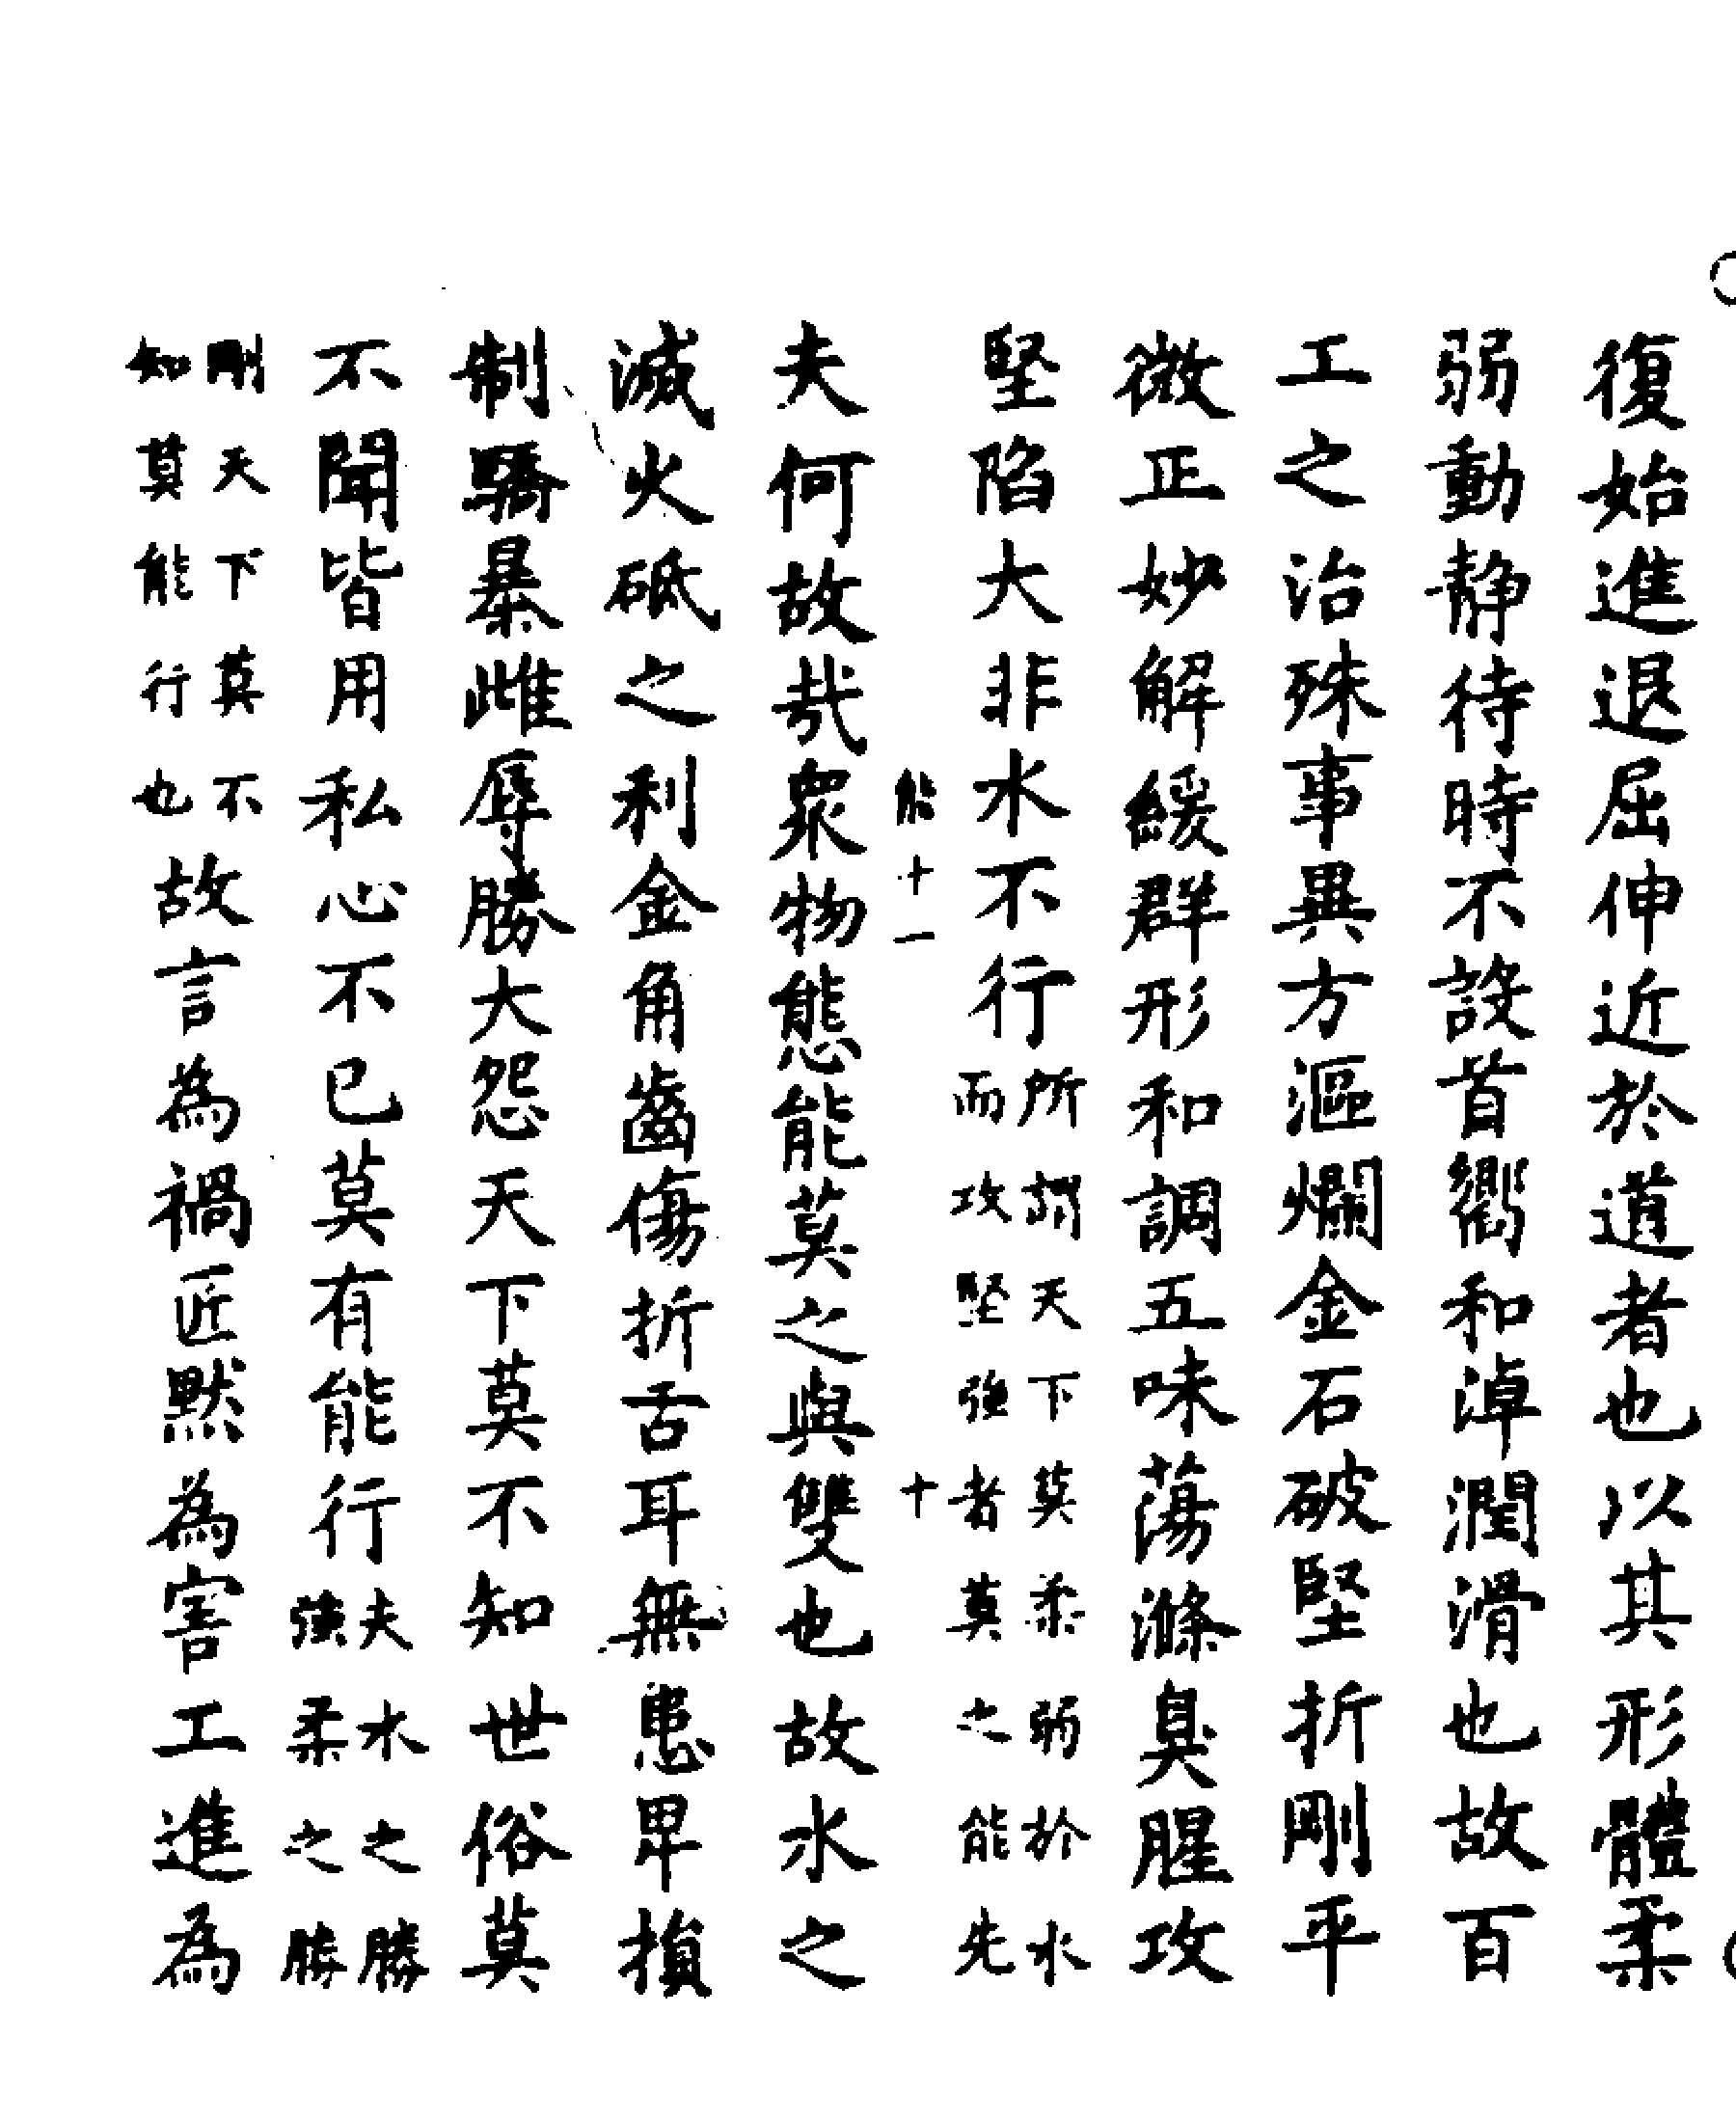 復始進退屈伸近於道者也以其形體柔
弱動静待時不設首嚮和淖潤滑也故百
工之治殊事異方漚爛金石破堅折剛平
微正妙解緩群形和調五味蕩滌臭腥攻
堅陷大非水不行所謂天下莫柔弱於水
而攻堅強者莫之能先
能十一
十
夫何故哉衆物態能莫之與雙也故水之
滅火砥之利金角齒傷折舌耳無患卑損
制驕暴雌辱勝大怨天下莫不知世俗莫
不聞皆用私心不已莫有能行夫水之勝
強柔之勝
剛天下莫不
知莫能行也故言為禍匠黙為害工進為